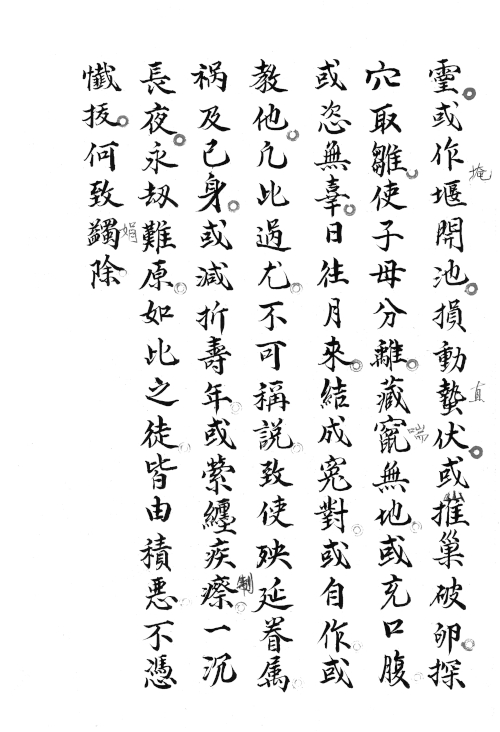 霊或作堰開池損動蟄伏或摧巢破卵探
掩
直
穴取雛使子母分離藏竄無地或充口腹
喘
或恣無辜日往月來結成寃對或自作或
教他凡此過尤不可稱説致使殃延眷属
禍及己身或減折壽年或縈纏疾瘵一沉
制
長夜永劫難原如此之徒皆由積惡不憑
懺拔何致蠲除
娟